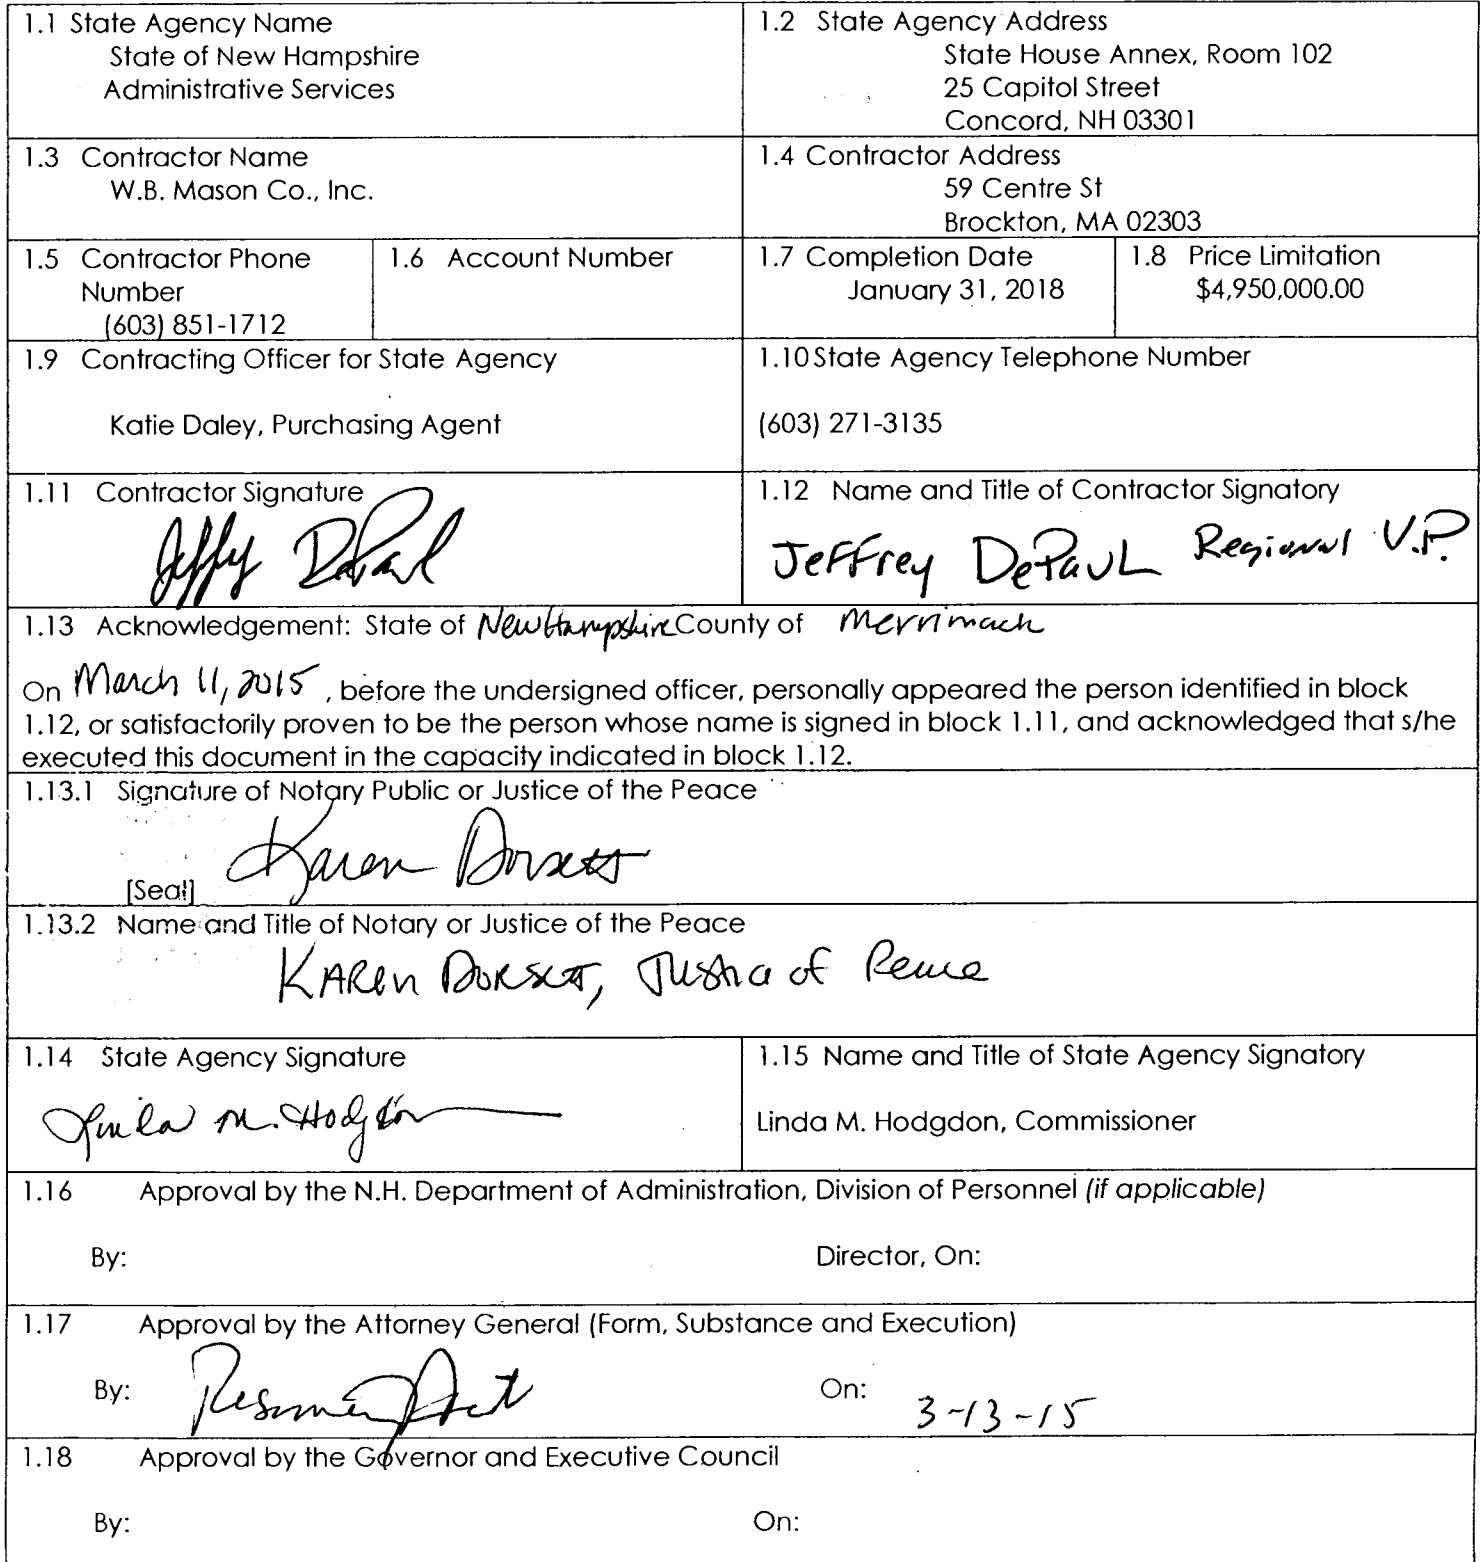 1.1 State Agency Name
State of New Hampshire
Administrative Services
1.2 State Agency Address
State House Annex, Room 102
25 Capitol Street
Concord, NH 03301
1.3 Contractor Name
W.B. Mason Co., Inc.
1.4 Contractor Address
59 Centre St
Brockton, MA 02303
1.5 Contractor Phone
Number
(603) 851-1712
1.6 Account Number
1.7 Completion Date
January 31, 2018
1.8 Price Limitation
$4,950,000.00
1.9 Contracting Officer for State Agency
Katie Daley, Purchasing Agent
1.10 State Agency Telephone Number
(603) 271-3135
1.11 Contractor Signature
Jeffy DePaul
1.12 Name and Title of Contractor Signatory
Jeffrey DePauL Regional V.P.
1.13 Acknowledgement: State of New Hampshire County of Merrimack
On March 11, 2015, before the undersigned officer, personally appeared the person identified in block
1.12, or satisfactorily proven to be the person whose name is signed in block 1.11, and acknowledged that s/he
executed this document in the capacity indicated in block 1.12.
1.13.1 Signature of Notary Public or Justice of the Peace
Karen Dorsett
[Seal]
1.13.2 Name and Title of Notary or Justice of the Peace
KAREn DORSETT, Justice of Peace
1.14 State Agency Signature
Linda M. Hodgdon
1.15 Name and Title of State Agency Signatory
Linda M. Hodgdon, Commissioner
1.16 Approval by the N.H. Department of Administration, Division of Personnel (if applicable)
By: Director, On:
1.17 Approval by the Attorney General (Form, Substance and Execution)
By: On: 3-13-15
1.18 Approval by the Governor and Executive Council
By: On: